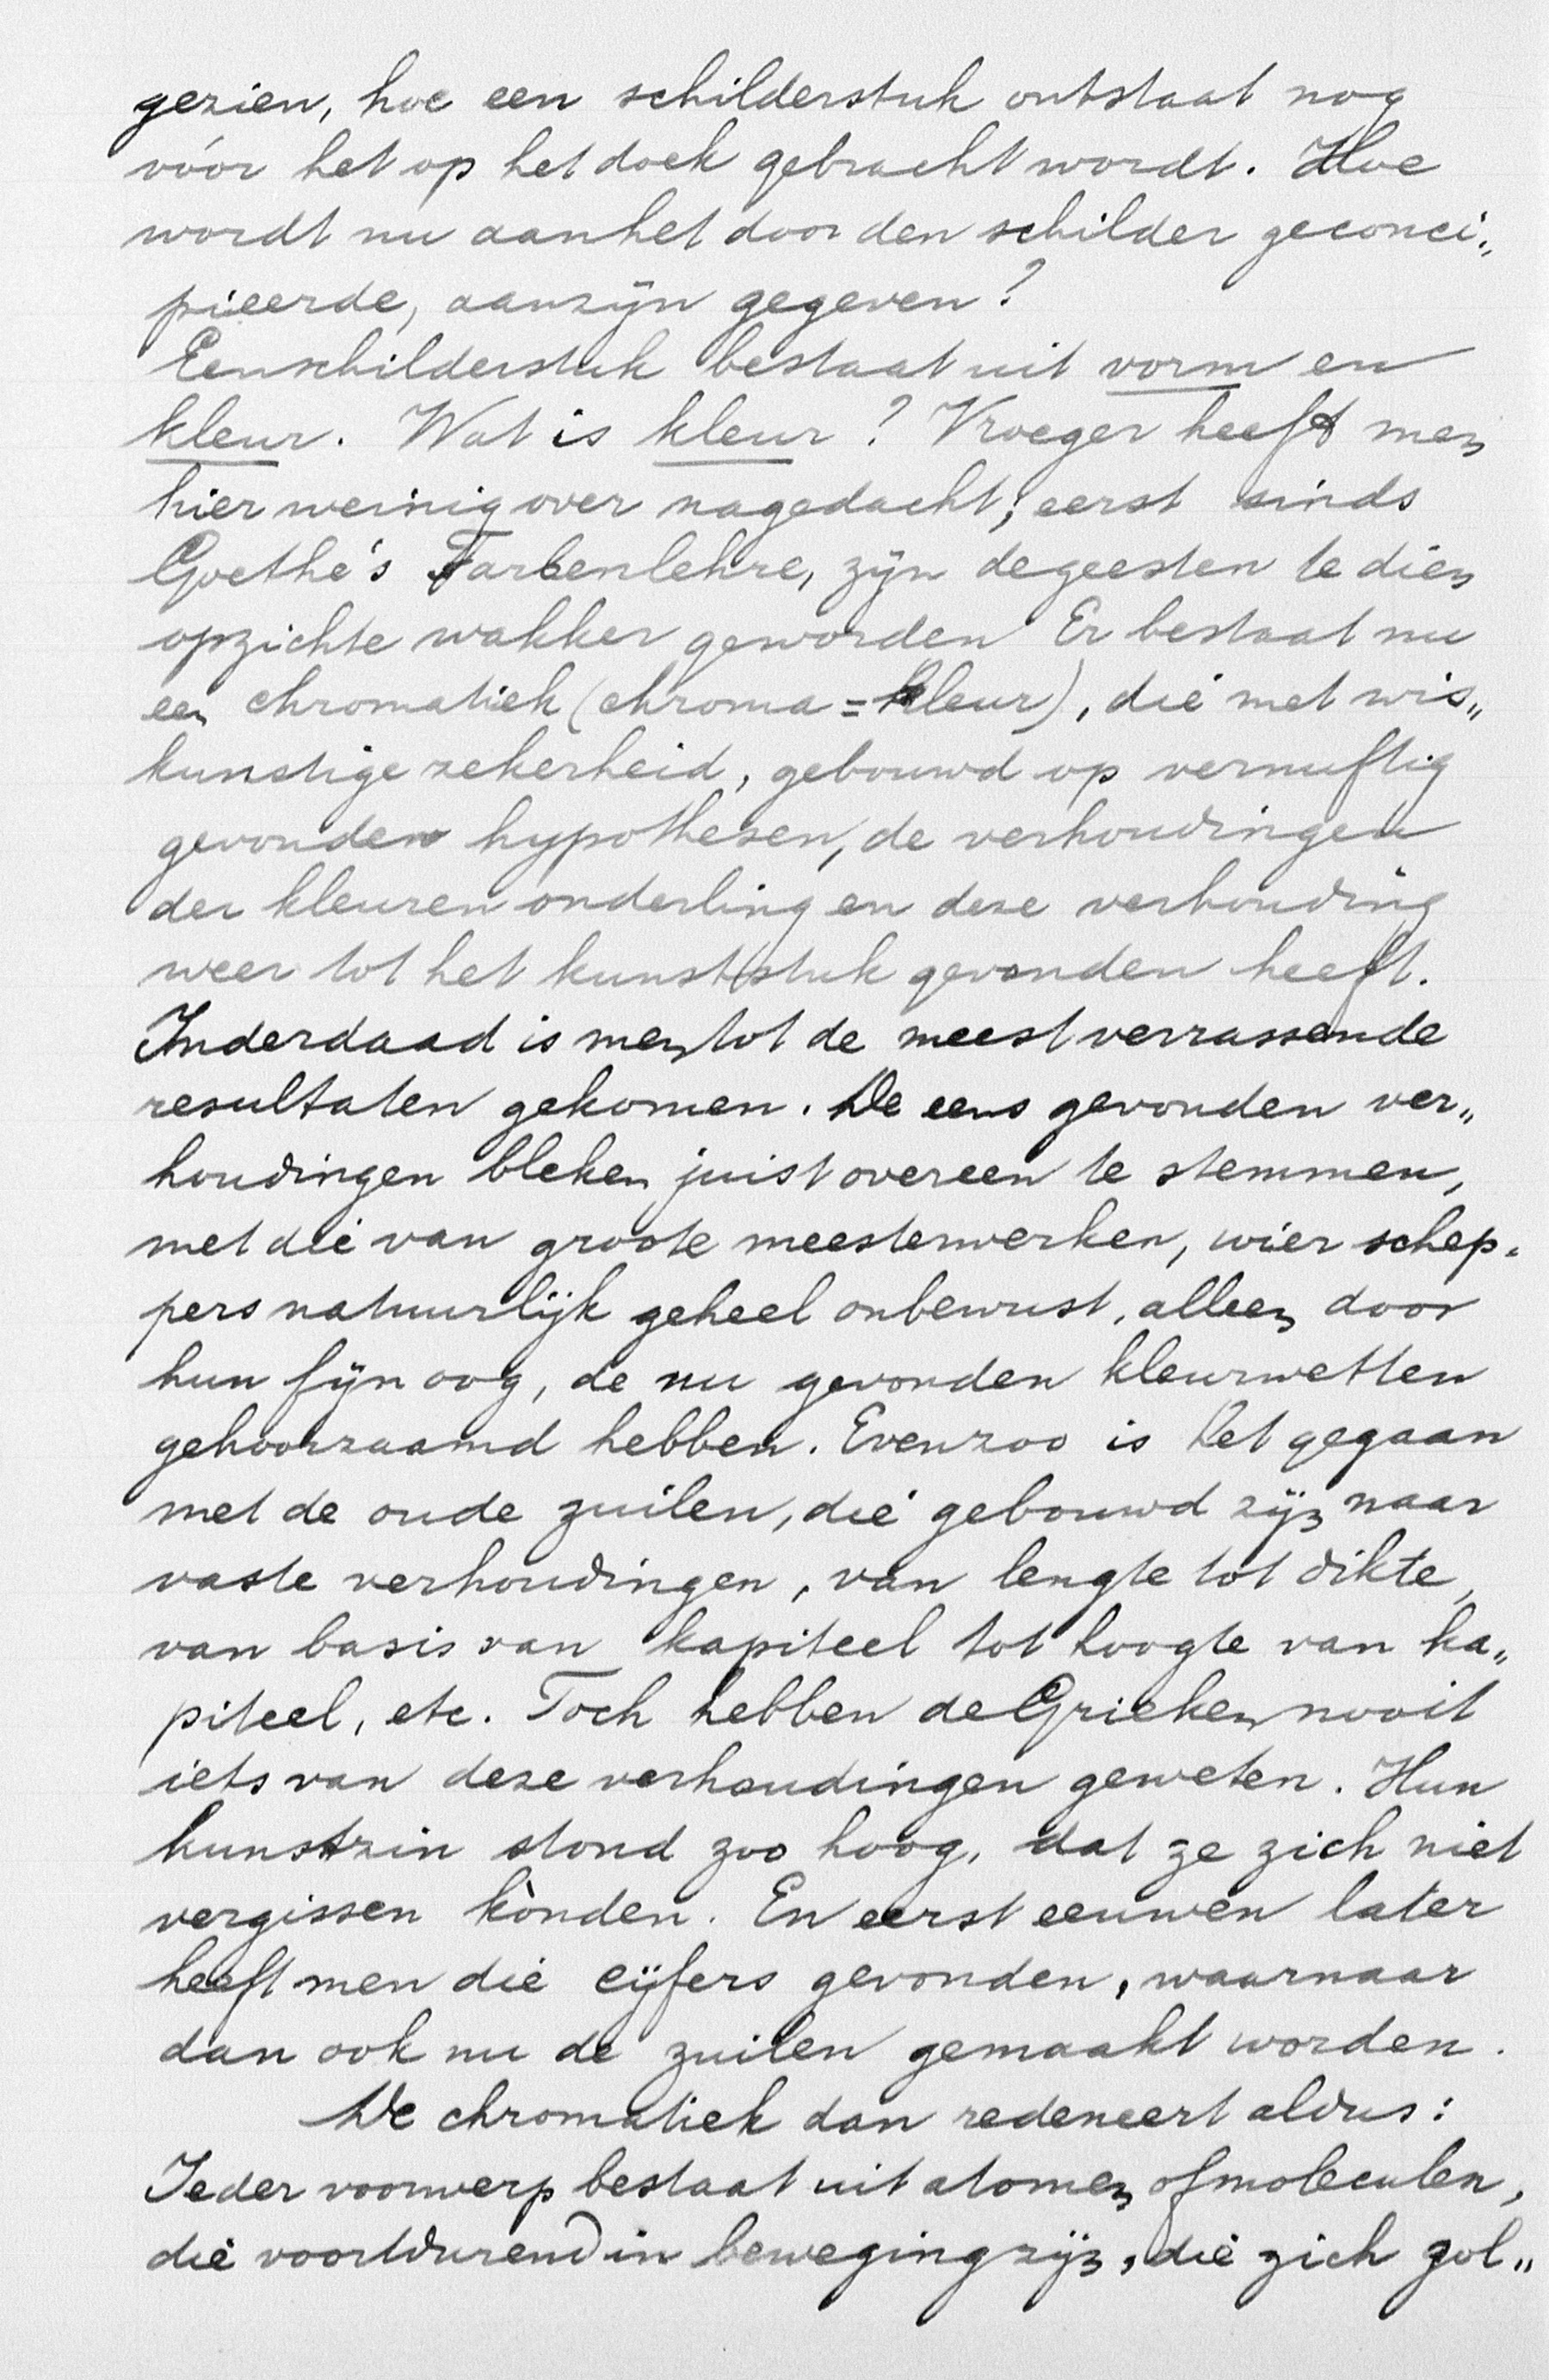 gezien, hoe een schilderstuk ontstaat nog
vóor het op het doek gebracht wordt. Hoe
wordt nu aan het door den schilder geconci„
pieerde, aanzijn gegeven?
Een schilderstuk bestaat uit vorm en
kleur. Wat is kleur? Vroeger heeft men
hier weinig over nagedacht; eerst sinds
Goethe's Farbenlehre, zijn de geesten te dien
opzichte wakker geworden Er bestaat nu
een chromatiek (chroma = kleur), die met wis„
kunstige zekerheid, gebouwd op vernuftig
gevonden hypothesen, de verhoudingen
der kleuren onderling en deze verhouding
weer tot het kunststuk gevonden heeft.
Inderdaad is men tot de meest verrassende
resultaten gekomen. De eens gevonden ver„
houdingen bleken juist overeen te stemmen,
met die van groote meesterwerken, wier schep„
pers natuurlijk geheel onbewust, alleen door
hun fijn oog, de nu gevonden kleurwetten
gehoorzaamd hebben. Evenzoo is het gegaan
met de oude zuilen, die gebouwd zijn naar
vaste verhoudingen, van lengte tot dikte,
van basis van kapiteel tot hoogte van ka„
piteel, etc. Toch hebben de Grieken nooit
iets van deze verhoudingen geweten. Hun
kunstzin stond zoo hoog, dat ze zich niet
vergissen kònden. En eerst eeuwen later
heeft men die cijfers gevonden, waarnaar
dan ook nu de zuilen gemaakt worden.
De chromatiek dan redeneert aldus:
Ieder voorwerp bestaat uit atomen of moleculen,
die voortdurend in beweging zijn, die zich gol„